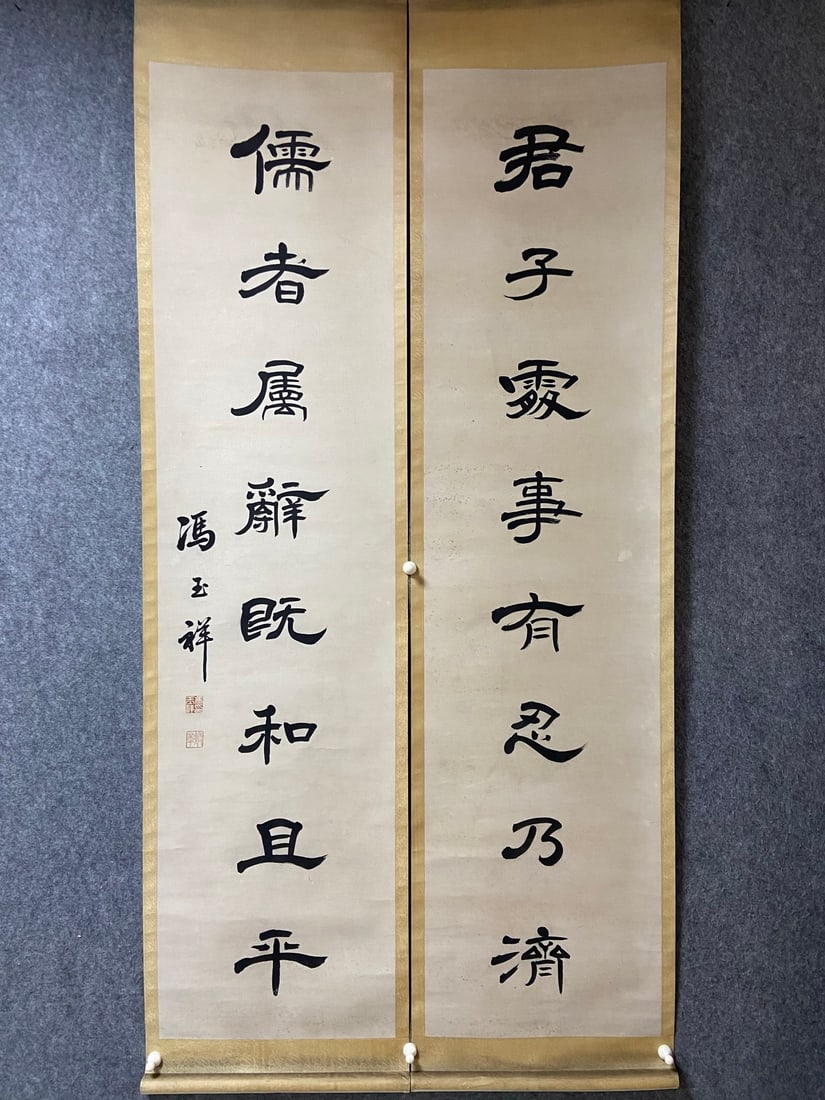 君子處事有忍乃濟
儒者属辭既和且平
馮玉祥